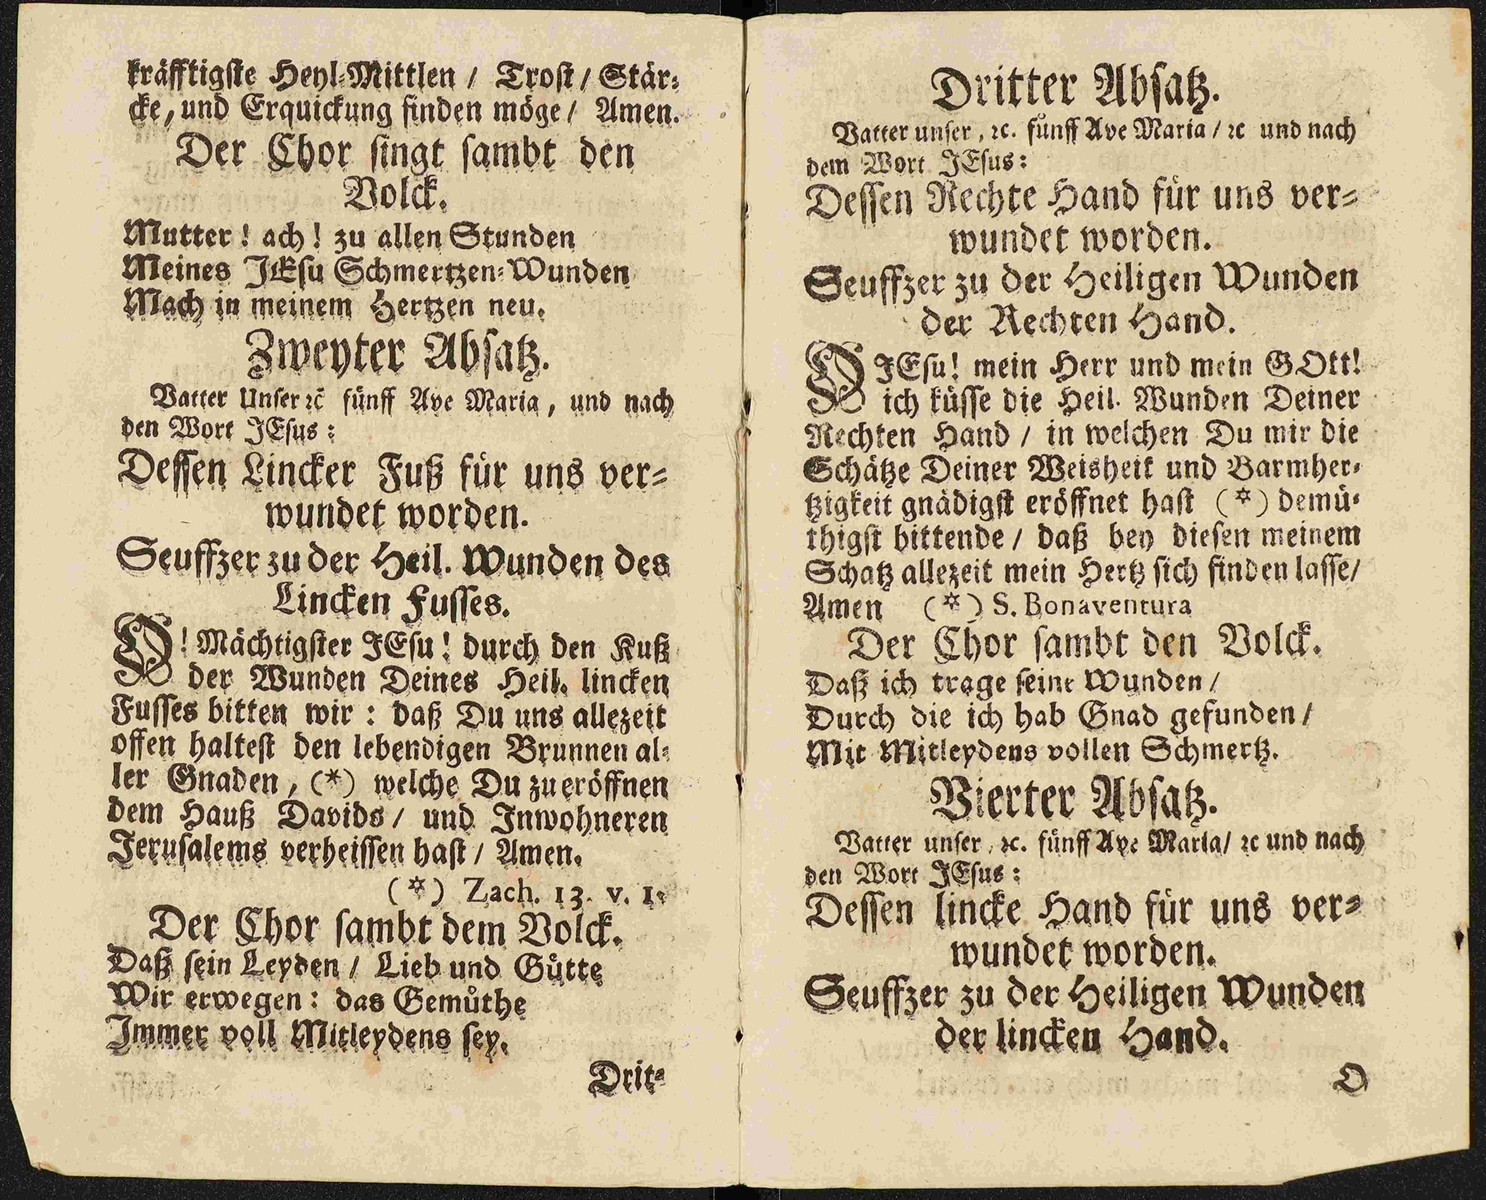 kräfftigste Heyl-Mittlen / Trost / Stär-
cke, und Erquickung finden möge / Amen.
Der Chor singt sambt den
Volck.
Mutter ! ach ! zu allen Stunden
Meines JEsu Schmertzen-Wunden
Mach in meinem Hertzen neu.
Zweyter Absatz.
Vatter Unser ꝛc fünff Ave Maria, und nach
den Wort JEsus :
Dessen Lincker Fuß für uns ver-
wundet worden.
Seuffzer zu der Heil. Wunden des
Lincken Fusses.
O! Mächtigster JEsu ! durch den Kuß
der Wunden Deines Heil. lincken
Fusses bitten wir : daß Du uns allezeit
offen haltest den lebendigen Brunnen al-
ler Gnaden, (*) welche Du zu eröffnen
dem Hauß Davids / und Inwohneren
Jerusalems verheissen hast / Amen.
(✡) Zach. 13. v. 1.
Der Chor sambt dem Volck.
Daß sein Leyden / Lieb und Gütte
Wir erwegen : das Gemůthe
Immer voll Mitleydens sey.
Drit-
Dritter Absatz.
Vatter unser, ꝛc. fůnff Ave Maria / ꝛc und nach
dem Wort JEsus :
Dessen Rechte Hand für uns ver-
wundet worden.
Seuffzer zu der Heiligen Wunden
der Rechten Hand.
O JEsu! mein Herr und mein GOtt!
ich küsse die Heil. Wunden Deiner
Rechten Hand / in welchen Du mir die
Schätze Deiner Weisheit und Barmher-
tzigkeit gnädigst eröffnet hast (✡) demü-
thigst bittende / daß bey diesen meinem
Schatz allezeit mein Hertz sich finden lasse/
Amen (✡) S. Bonaventura
Der Chor sambt den Volck.
Daß ich trage seine Wunden /
Durch die ich hab Gnad gefunden /
Mit Mitleydens vollen Schmertz.
Vierter Absatz.
Vatter unser, ꝛc. fünff Ave Maria/ ꝛc und nach
den Wort JEsus :
Dessen lincke Hand für uns ver-
wundet worden.
Seuffzer zu der Heiligen Wunden
der lincken Hand.
O